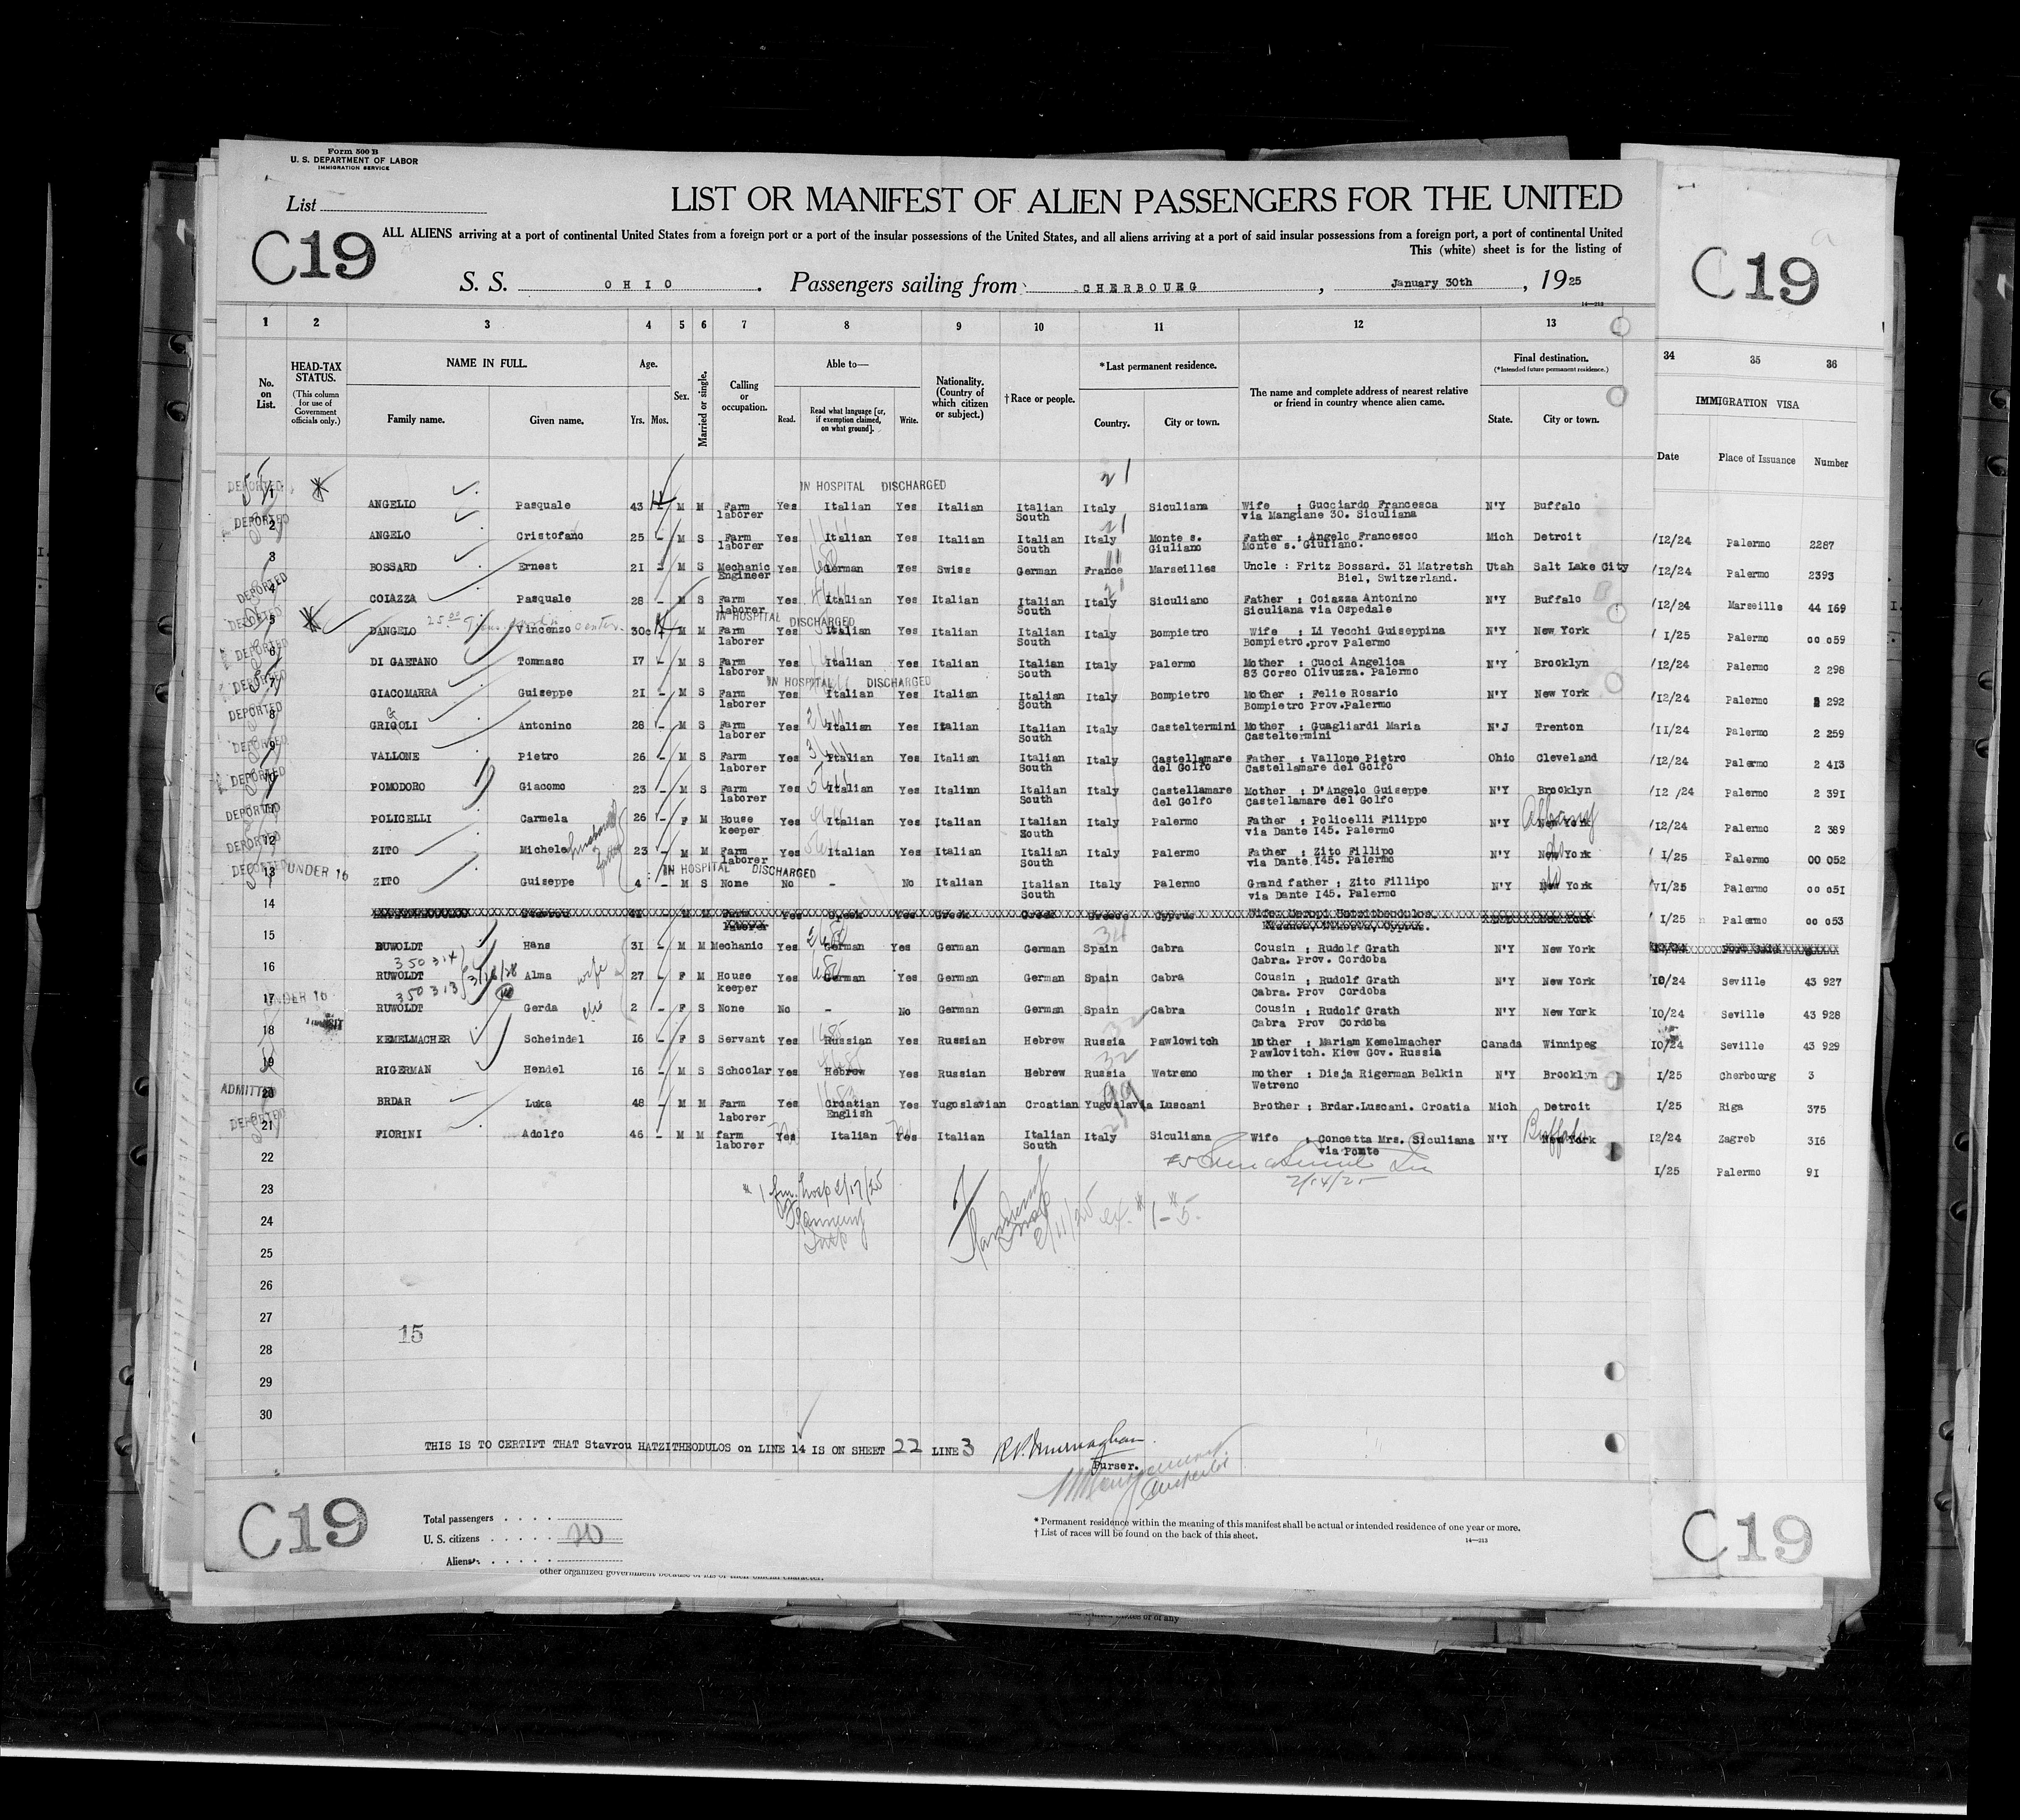 Form 500 B
U. S. DEPARTMENT OF LABOR
IMMIGRATION SERVICE
List
LIST OR MANIFEST OF ALIEN PASSENGERS FOR THE UNITED
C19
ALL ALIENS arriving at a port of continental United States from a foreign port or a port of the insular possessions of the United States, and all aliens arriving at a port of said insular possessions from a foreign port, a port of continental United
This (white) sheet is for the listing of
C19
S. S. OHIO. Passengers sailing from CHERBOUEG, January 30th, 1925
14—213
1 2 3 4 5 6 7 8 9 10 11 12 13 34 35 36
No. on List.
HEAD-TAX STATUS.
(This column for use of Government officials only.)
NAME IN FULL.
Family name. Given name.
Age.
Yrs. Mos.
Sex.
Married or single.
Calling or occupation.
Able to—
Read. Read what language [or, if exemption claimed, on what ground]. Write.
Nationality. (Country of which citizen or subject.)
†Race or people.
*Last permanent residence.
Country. City or town.
The name and complete address of nearest relative or friend in country whence alien came.
Final destination.
(*Intended future permanent residence.)
State. City or town.
IMMIGRATION VISA
Date Place of Issuance Number
21
IN HOSPITAL DISCHARGED
DEPORTED 1 ANGELLO Pasquale 43 M M Farm laborer Yes Italian Yes Italian Italian South Italy Siculiana Wife : Gucciardo Francesca via Mangiane 30. Siculiana N'Y Buffalo
DEPORTED 2 ANGELO Cristofano 25 - M S Farm laborer Yes Italian Yes Italian Italian South Italy Monte s. Giuliano Father : Angelo Francesco Monte s. Giuliano. Mich Detroit /12/24 Palermo 2287
3 BOSSARD Ernest 21 - M S Mechanic Engineer Yes German Yes Swiss German France Marseilles Uncle : Fritz Bossard. 31 Matretsh Biel, Switzerland. Utah Salt Lake City /12/24 Palermo 2393
DEPORTED 4 COIAZZA Pasquale 28 - M S Farm laborer Yes Italian Yes Italian Italian South Italy Siculiano Father : Coiazza Antonino Siculiana via Ospedale N'Y Buffalo /12/24 Marseille 44 169
IN HOSPITAL DISCHARGED
DEPORTED 5 DANGELO Vincenzo 30 M M Farm laborer Yes Italian Yes Italian Italian South Italy Bompietro Wife : Li Vecchi Guiseppina Bompietro.prov Palermo N'Y New York I/25 Palermo 00 059
DEPORTED 6 DI GAETANO Tommaso 17 - M S Farm laborer Yes Italian Yes Italian Italian South Italy Palermo Mother : Cucci Angelica 83 Corso Olivuzza. Palermo N'Y Brooklyn /12/24 Palermo 2 298
IN HOSPITAL DISCHARGED
DEPORTED 7 GIACOMARRA Guiseppe 21 - M S Farm laborer Yes Italian Yes Italian Italian South Italy Bompietro Mother : Felie Rosario Bompietro Prov.Palermo N'Y New York /12/24 Palermo 292
DEPORTED 8 GRIGOLI Antonino 28 - M S Farm laborer Yes Italian Yes Italian Italian South Italy Casteltermini Mother : Guagliardi Maria Casteltermini N'J Trenton /11/24 Palermo 2 259
DEPORTED 9 VALLONE Pietro 26 - M S Farm laborer Yes Italian Yes Italian Italian South Italy Castellamare del Golfo Father : Vallone Pietro Castellamare del Golfo Ohio Cleveland /12/24 Palermo 2 413
DEPORTED 10 POMODORO Giacomo 23 - M S Farm laborer Yes Italian Yes Italian Italian South Italy Castellamare del Golfo Mother : D'Angelo Guiseppe Castellamare del Golfo N'Y Brooklyn /12 /24 Palermo 2 391
DEPORTED 11 POLICELLI Carmela 26 - F M House keeper Yes Italian Yes Italian Italian South Italy Palermo Father : Policelli Filippo via Dante I45. Palermo N'Y New York Albany /12/24 Palermo 2 389
DEPORTED 12 ZITO Michele husband 23 - M M Farm laborer Yes Italian Yes Italian Italian South Italy Palermo Father : Zito Fillipo via Dante I45. Palermo N'Y New York do I/25 Palermo 00 052
IN HOSPITAL DISCHARGED
DEPORTED 13 UNDER 16 ZITO Guiseppe 4 - M S None No - No Italian Italian South Italy Palermo Grand father : Zito Fillipo via Dante I45. Palermo N'Y New York do I/25 Palermo 00 051
14 Stavrou 41 M M Farm laborer Yes Greek Yes Greek Greek Greece Cyprus Wife I/25 Palermo 00 053
15 RUWOLDT Hans 31 - M M Mechanic Yes German Yes German German Spain Cabra Cousin : Rudolf Grath Cabra. Prov. Cordoba N'Y New York
350314
16 RUWOLDT 3/16/28 Alma wife 27 - F M House keeper Yes German Yes German German Spain Cabra Cousin : Rudolf Grath Cabra. Prov Cordoba N'Y New York 10/24 Seville 43 927
350313
UNDER 16 17 RUWOLDT Gerda 2 - F S None No - No German German Spain Cabra Cousin : Rudolf Grath Cabra Prov Cordoba N'Y New York 10/24 Seville 43 928
18 KEMELMACHER Scheindel 16 - F S Servant Yes Russian Yes Russian Hebrew Russia Pawlowitch Mother : Mariam Kemelmacher Pawlovitch. Kiew Gov. Russia Canada Winnipeg 10/24 Seville 43 929
19 RIGERMAN Hendel 16 - M S Schoolar Yes Hebrew Yes Russian Hebrew Russia Wetreno mother : Disja Rigerman Belkin Wetreno N'Y Brooklyn I/25 Cherbourg 3
ADMITTED 20 BRDAR Luka 48 - M M Farm laborer Yes Croatian English Yes Yugoslavian Croatian Yugoslavia Luscani Brother : Brdar.Luscani. Croatia Mich Detroit I/25 Riga 375
DEPORTED 21 FIORINI Adolfo 46 - M M farm laborer Yes Italian Yes Italian Italian South Italy Siculiana Wife : Concetta Mrs. Siculiana via Pomte N'Y New York Buffalo 12/24 Zagreb 316
22 2/14/25 I/25 Palermo 91
23 2/17/25
24 2/11/25 #1-#5.
25
26
27
15
28
29
30
THIS IS TO CERTIFT THAT Stavrou HATZITHEODULOS on LINE 14 IS ON SHEET 22 LINE 3
Purser.
C19
Total passengers
U. S. citizens 20
Aliens
* Permanent residence within the meaning of this manifest shall be actual or intended residence of one year or more.
† List of races will be found on the back of this sheet.
14—213
C19
other organized government because of his or their official character.